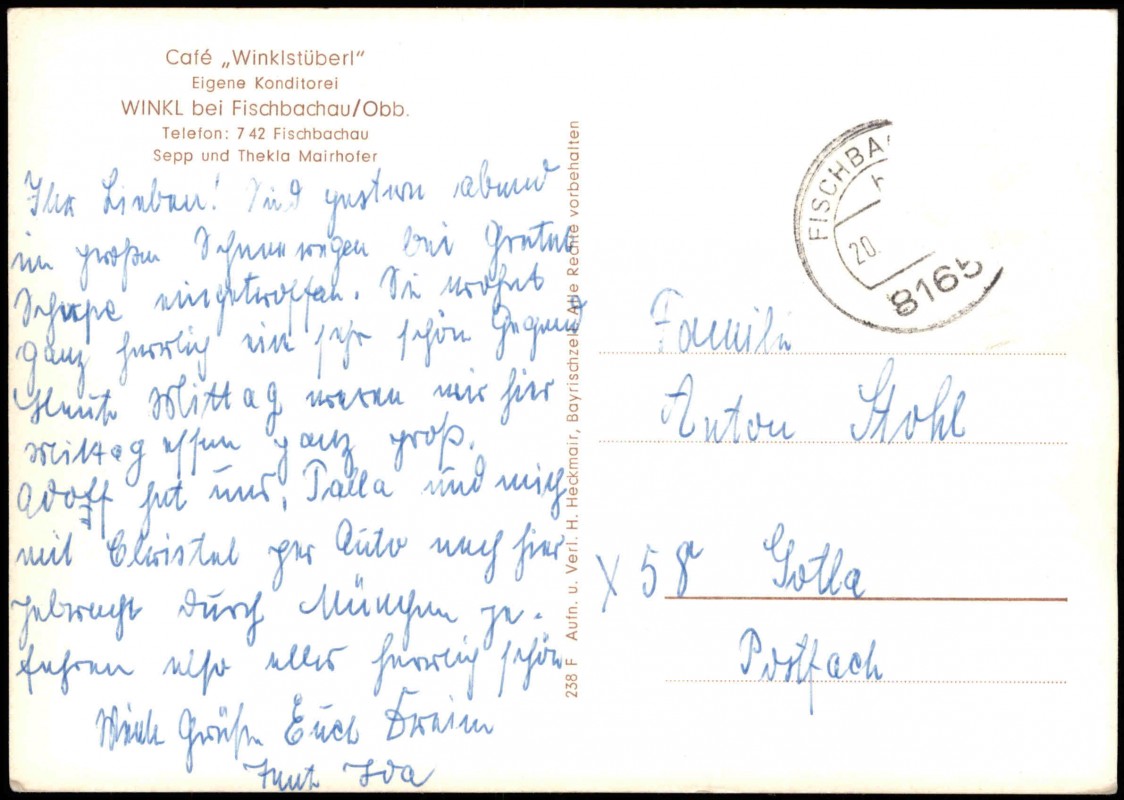 Café „Winklstüberl"
Eigene Konditorei
WINKL bei Fischbachau/Obb.
Telefon: 7 42 Fischbachau
Sepp und Thekla Mairhofer
Ihr Lieben! Sind gestern abend
im großen Schneeregen bei Gretel
eingetroffen. Sie wohnt
ganz herrlich ein sehr schön Gegend
Heute Mittag waren wir hier
Mittag essen ganz groß.
Adolf hat uns, und mich
mit Christel per Auto nach hier
gebracht durch München ge-
fahren also alles herrlich schön
Grüße Euch Dreien
Tant Ida
238 F Aufn. u. Verl. H. Heckmair, Bayrischzell. Alle Rechte vorbehalten
FISCHBA
20.
8165
Familie
Anton Stohl
X 58 Gotha
Postfach